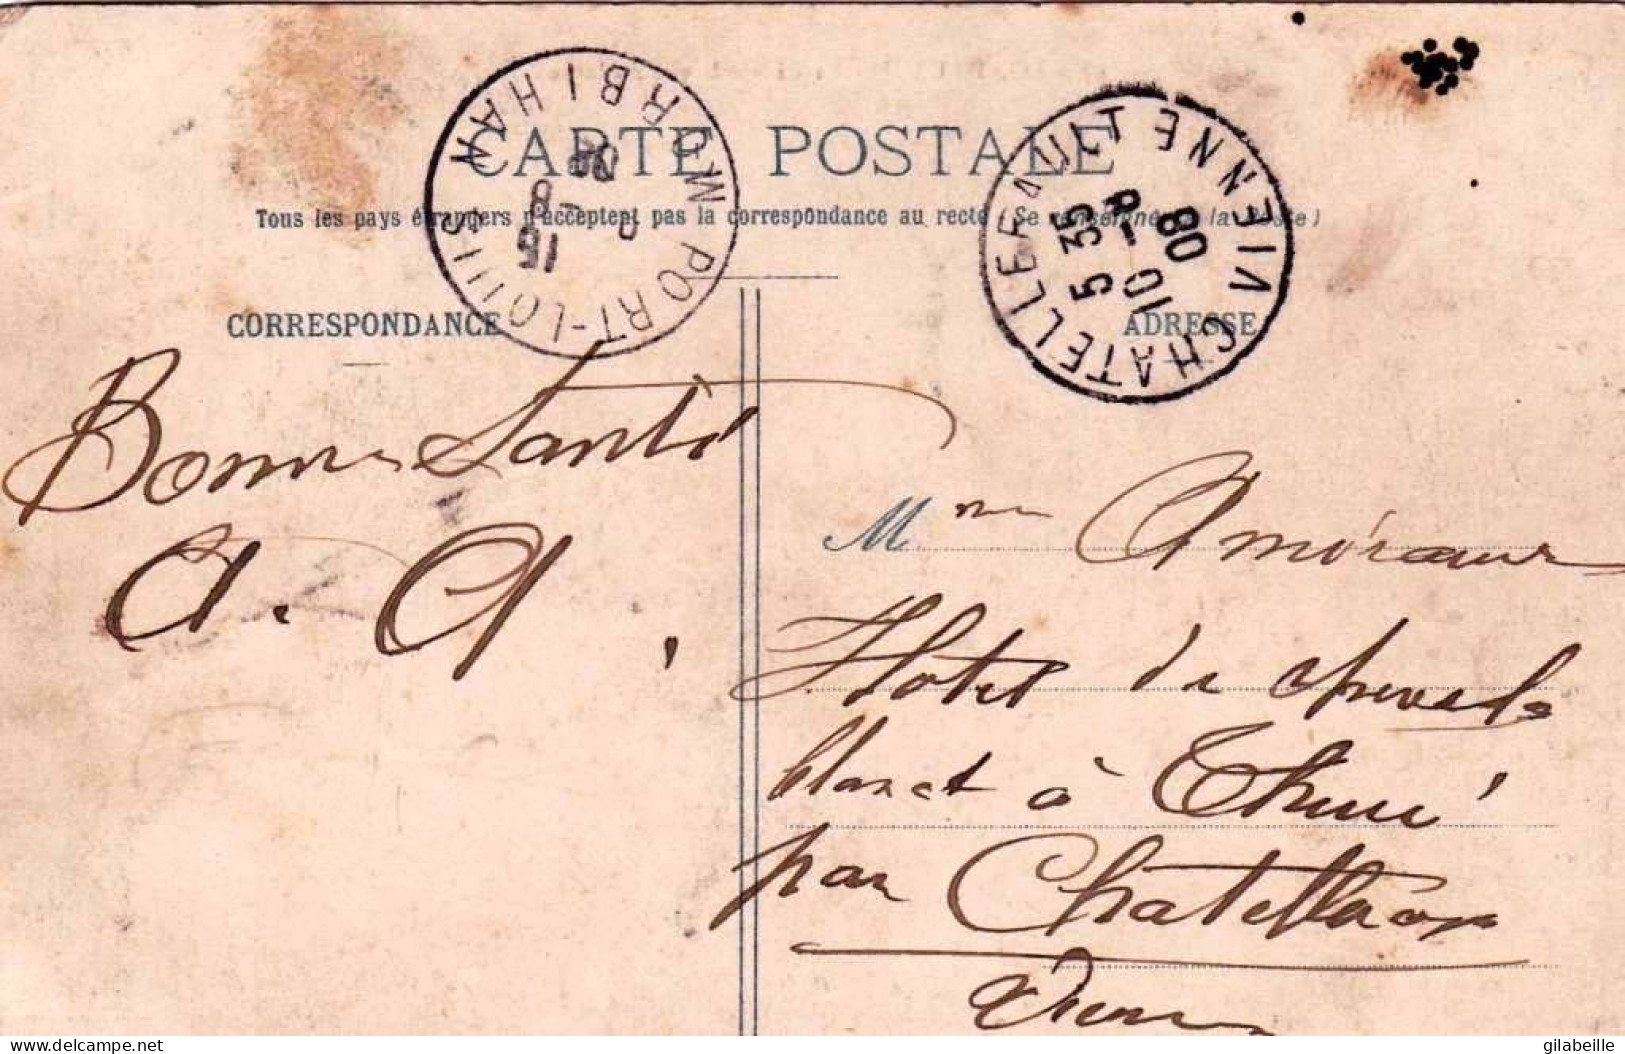 CARTE POSTALE
Tous les pays étrangers n'acceptent pas la correspondance au recto (Se renseigner à la Poste)
PORT-LOUIS MORBIHAN
15
8 - 8
08
CHATELLERAULT VIENNE
5 35
10 - 8
08
CORRESPONDANCE
ADRESSE
Bonne Santé
A. A.
Mme
Hotel du cheval
blanc à Thuré
par Chatellerau
Vienne
delcampe.net
gilabeille